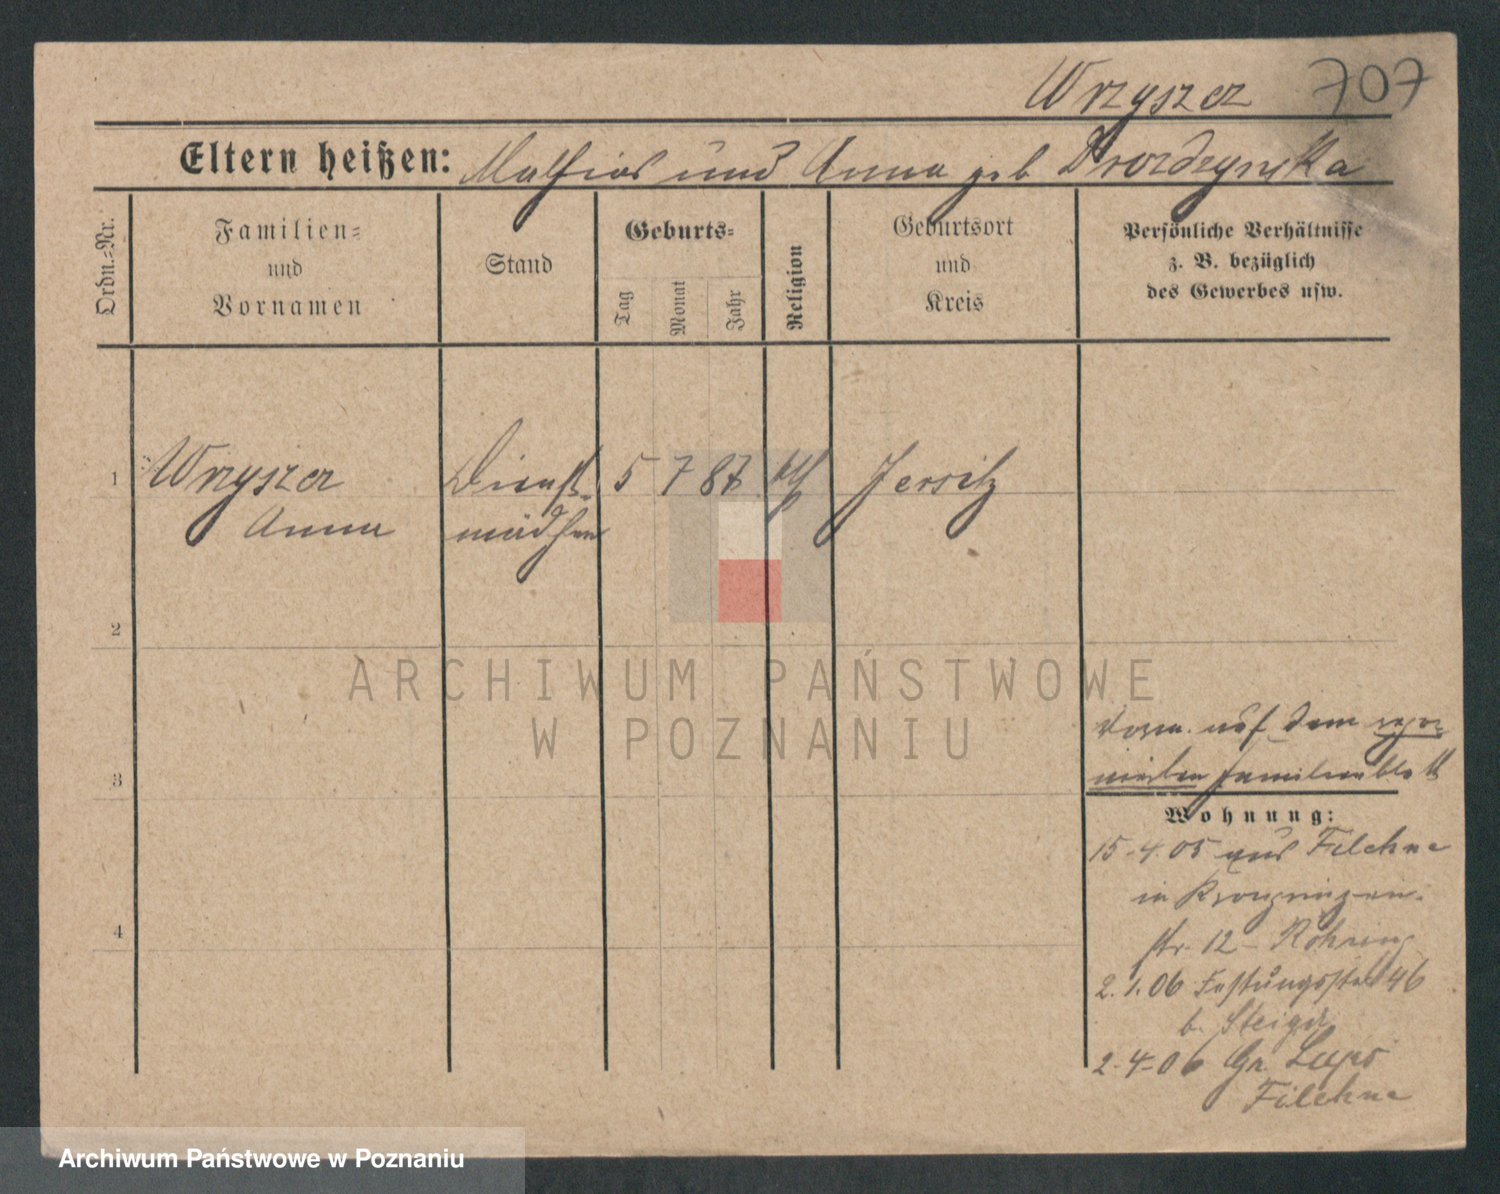 Wrzyszcz 707
Eltern heißen: Mathias und Anna geb Drordzynska
Ordn.-Nr.
Familien-
und
Vornamen
Stand
Geburts-
Tag
Monat
Jahr
Religion
Geburtsort
und
Kreis
Persönliche Verhältnisse
z. B. bezüglich
des Gewerbes usw.
1 Dienst- 5 7 87 Jersitz
Anna mädchen
2
3
4
auf dem
Familienblatt
Wohnung:
15-4.05 aus Filehne
in
str. 12 - Röhring
2.1.06 46
b. Steiger
2-4-06 Gr.
Filehne
ARCHIWUM PAŃSTWOWE
W POZNANIU
Archiwum Państwowe w Poznaniu